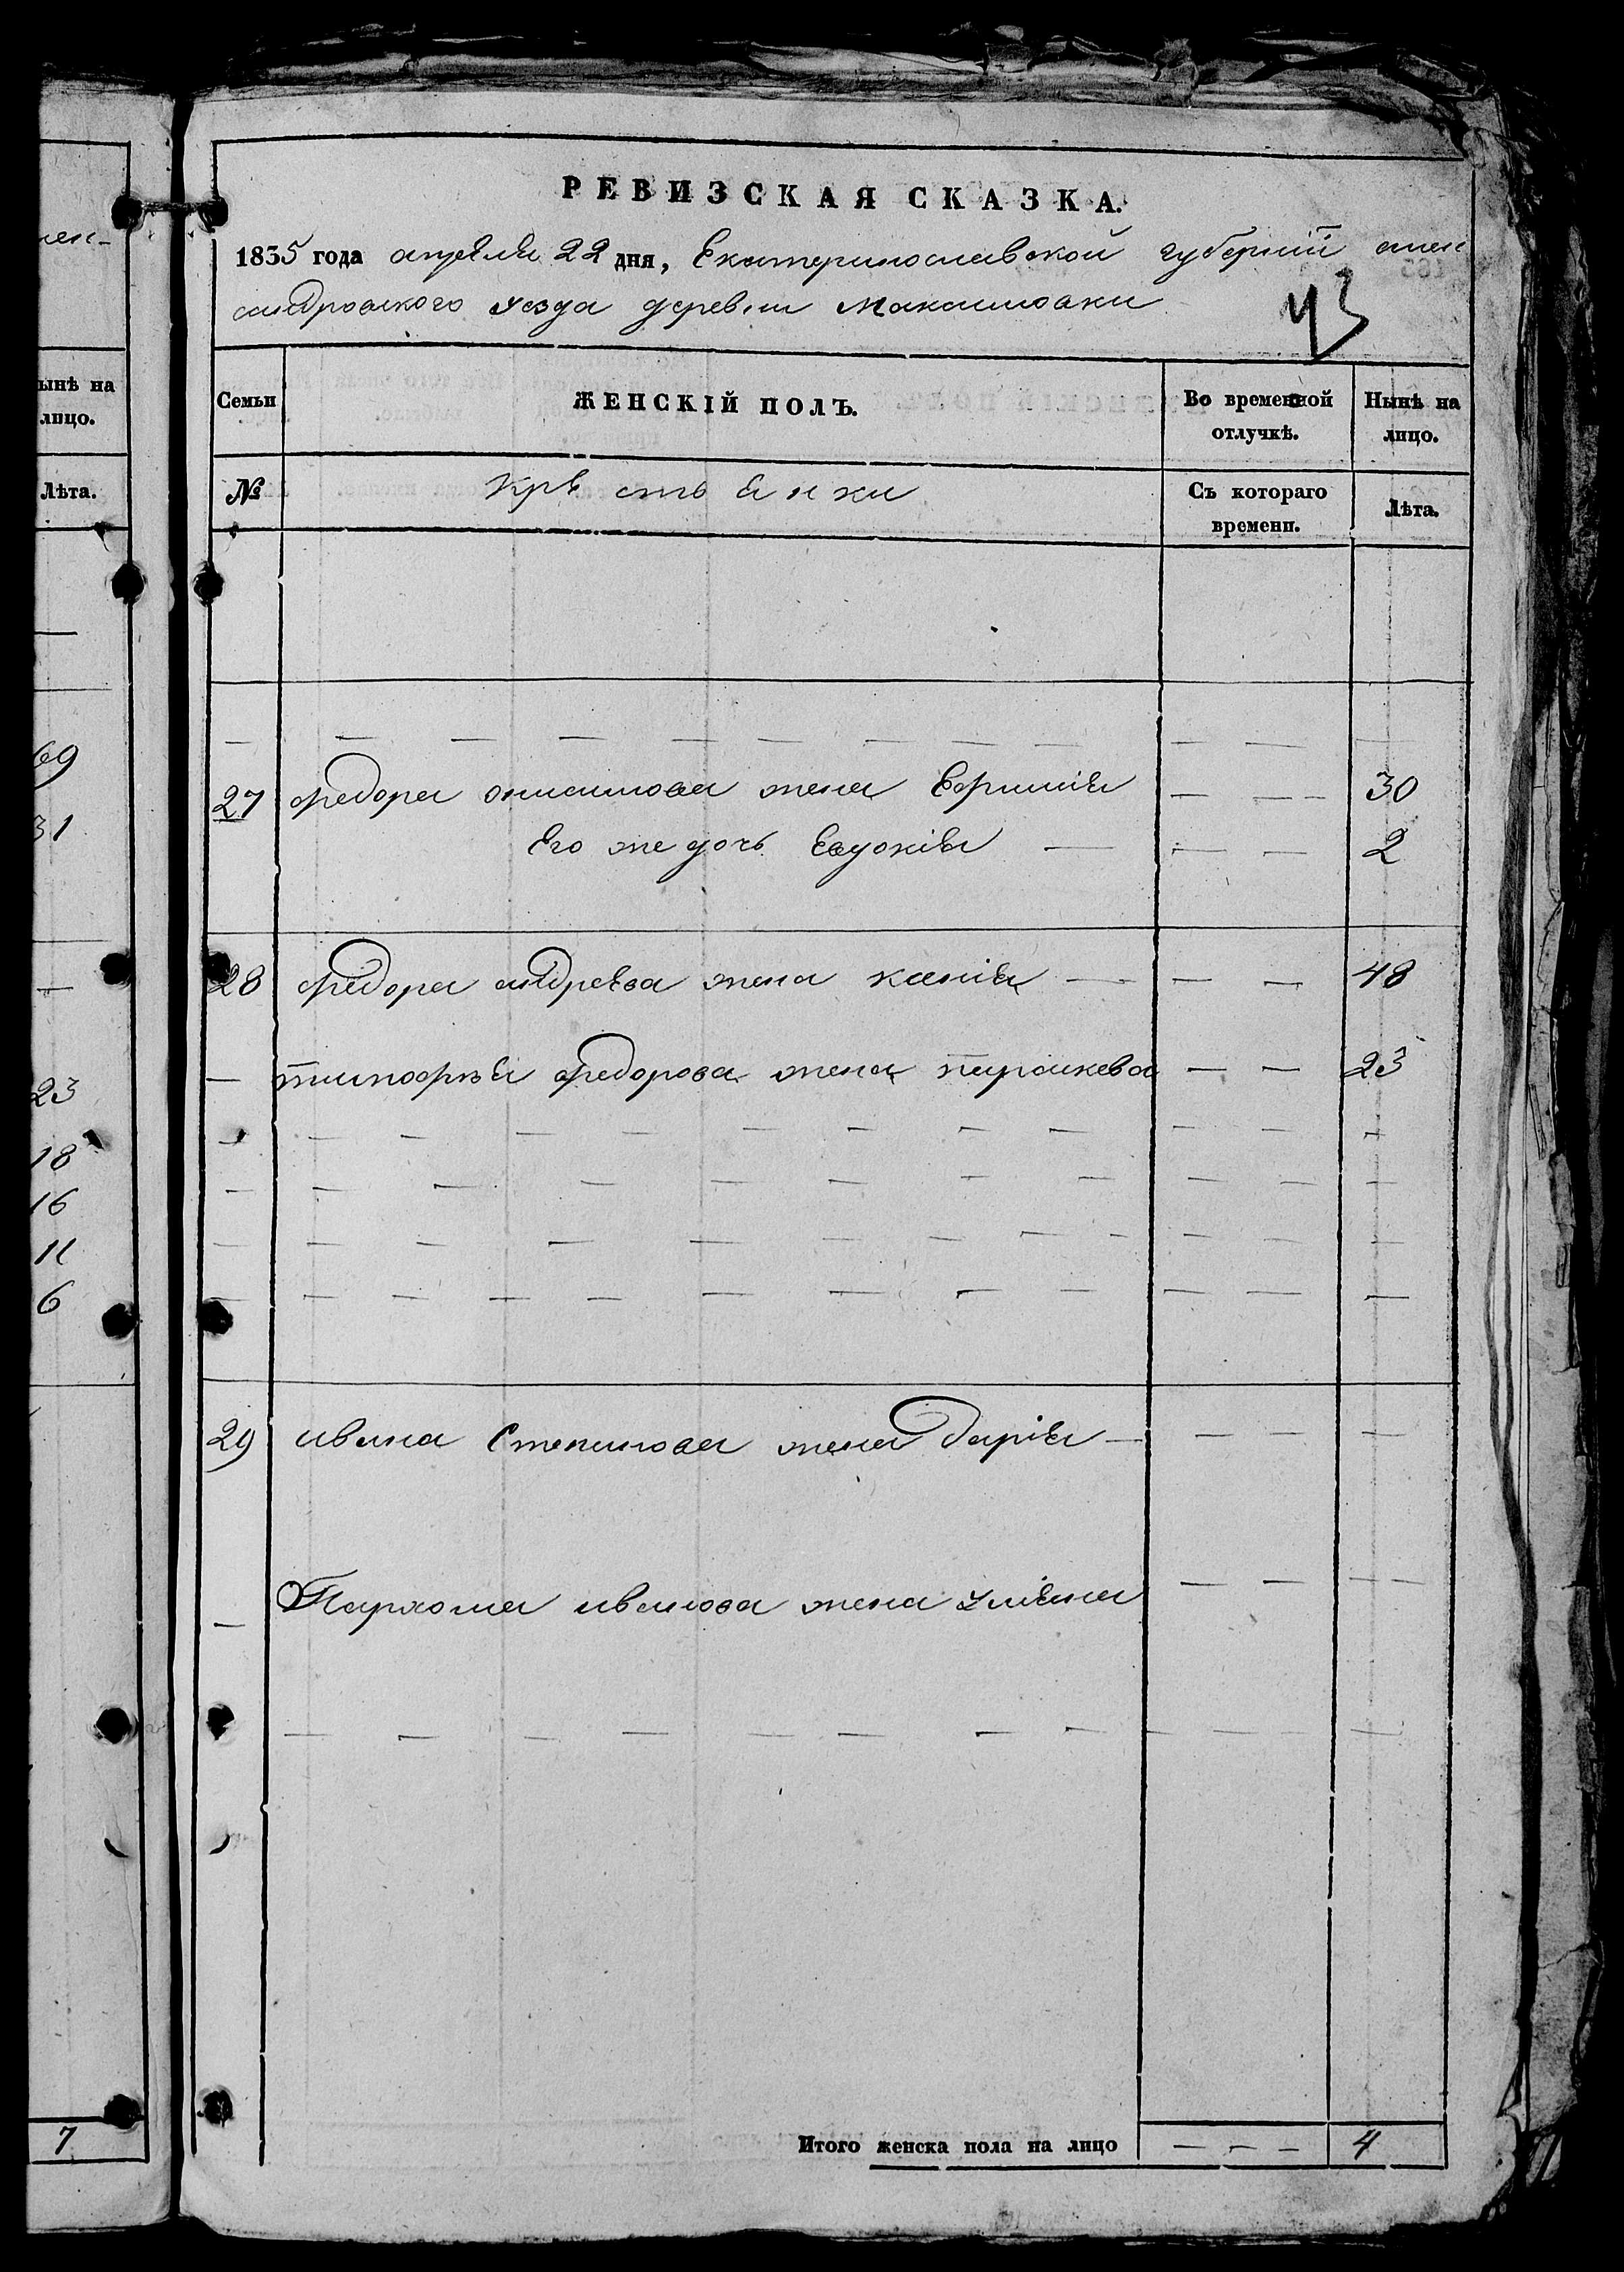 мен-
ынѣ на
лицо.
Лѣта.
69
31
23
18
16
11
6
7
РЕВИЗСКАЯ СКАЗКА.
1835 года апреля 22 дня, Екатеринославской губерніи алек
сандровского уезда деревни Максимовки
43
Семьи
ЖЕНСКІЙ ПОЛЪ.
Во временной отлучкѣ.
Нынѣ на лицо.
№
Крестьянки
Съ котораго времени.
Лѣта.
27 Федора онисимова жена Ефимия — — — 30
Его же дочь Евдокия — — — 2
28 Федора андреева жена ксения — — — 48
— тимофея федорова жена параскева — — 23
29 ивана Степанова жена дария — — — —
— Пархома иванова жена улияна — — — —
Итого женска пола на лицо — — — 4